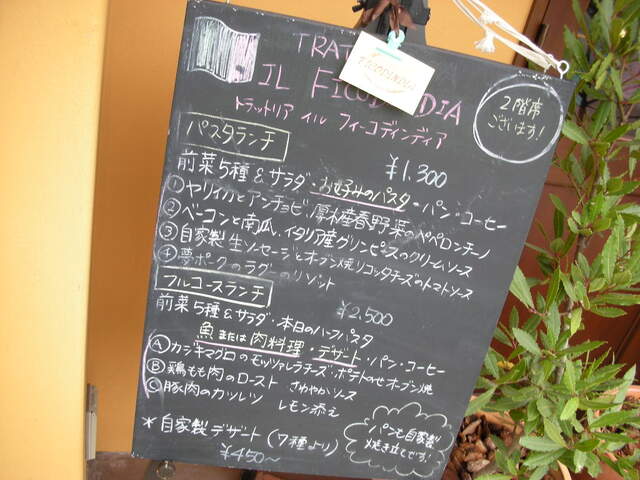 TRAT
IL FICOD DIA
トラットリア イル フィーコディンディア
2階席
ございます!
パスタランチ
¥1,300
前菜5種&サラダ・お好みのパスタ・パン・コーヒー
①ヤリイカとアンチョビ、厚木産春野菜のペペロンチーノ
②ベーコンと南瓜、イタリア産グリンピースのクリームソース
③自家製生ソーセージとオーブン焼リコッタチーズのトマトソース
④夢ポークのラグーのリゾット
フルコースランチ
¥2,500
前菜5種&サラダ・本日のハーフパスタ
魚または肉料理・デザート・パン・コーヒー
Ⓐカジキマグロのモッツァレラチーズ・ポテトのせオーブン焼
Ⓑ鶏もも肉のロースト さわやかソース
Ⓒ豚肉のカツレツ レモン添え
*自家製デザート(7種より)
¥450~
パンも自家製
焼き立てです!